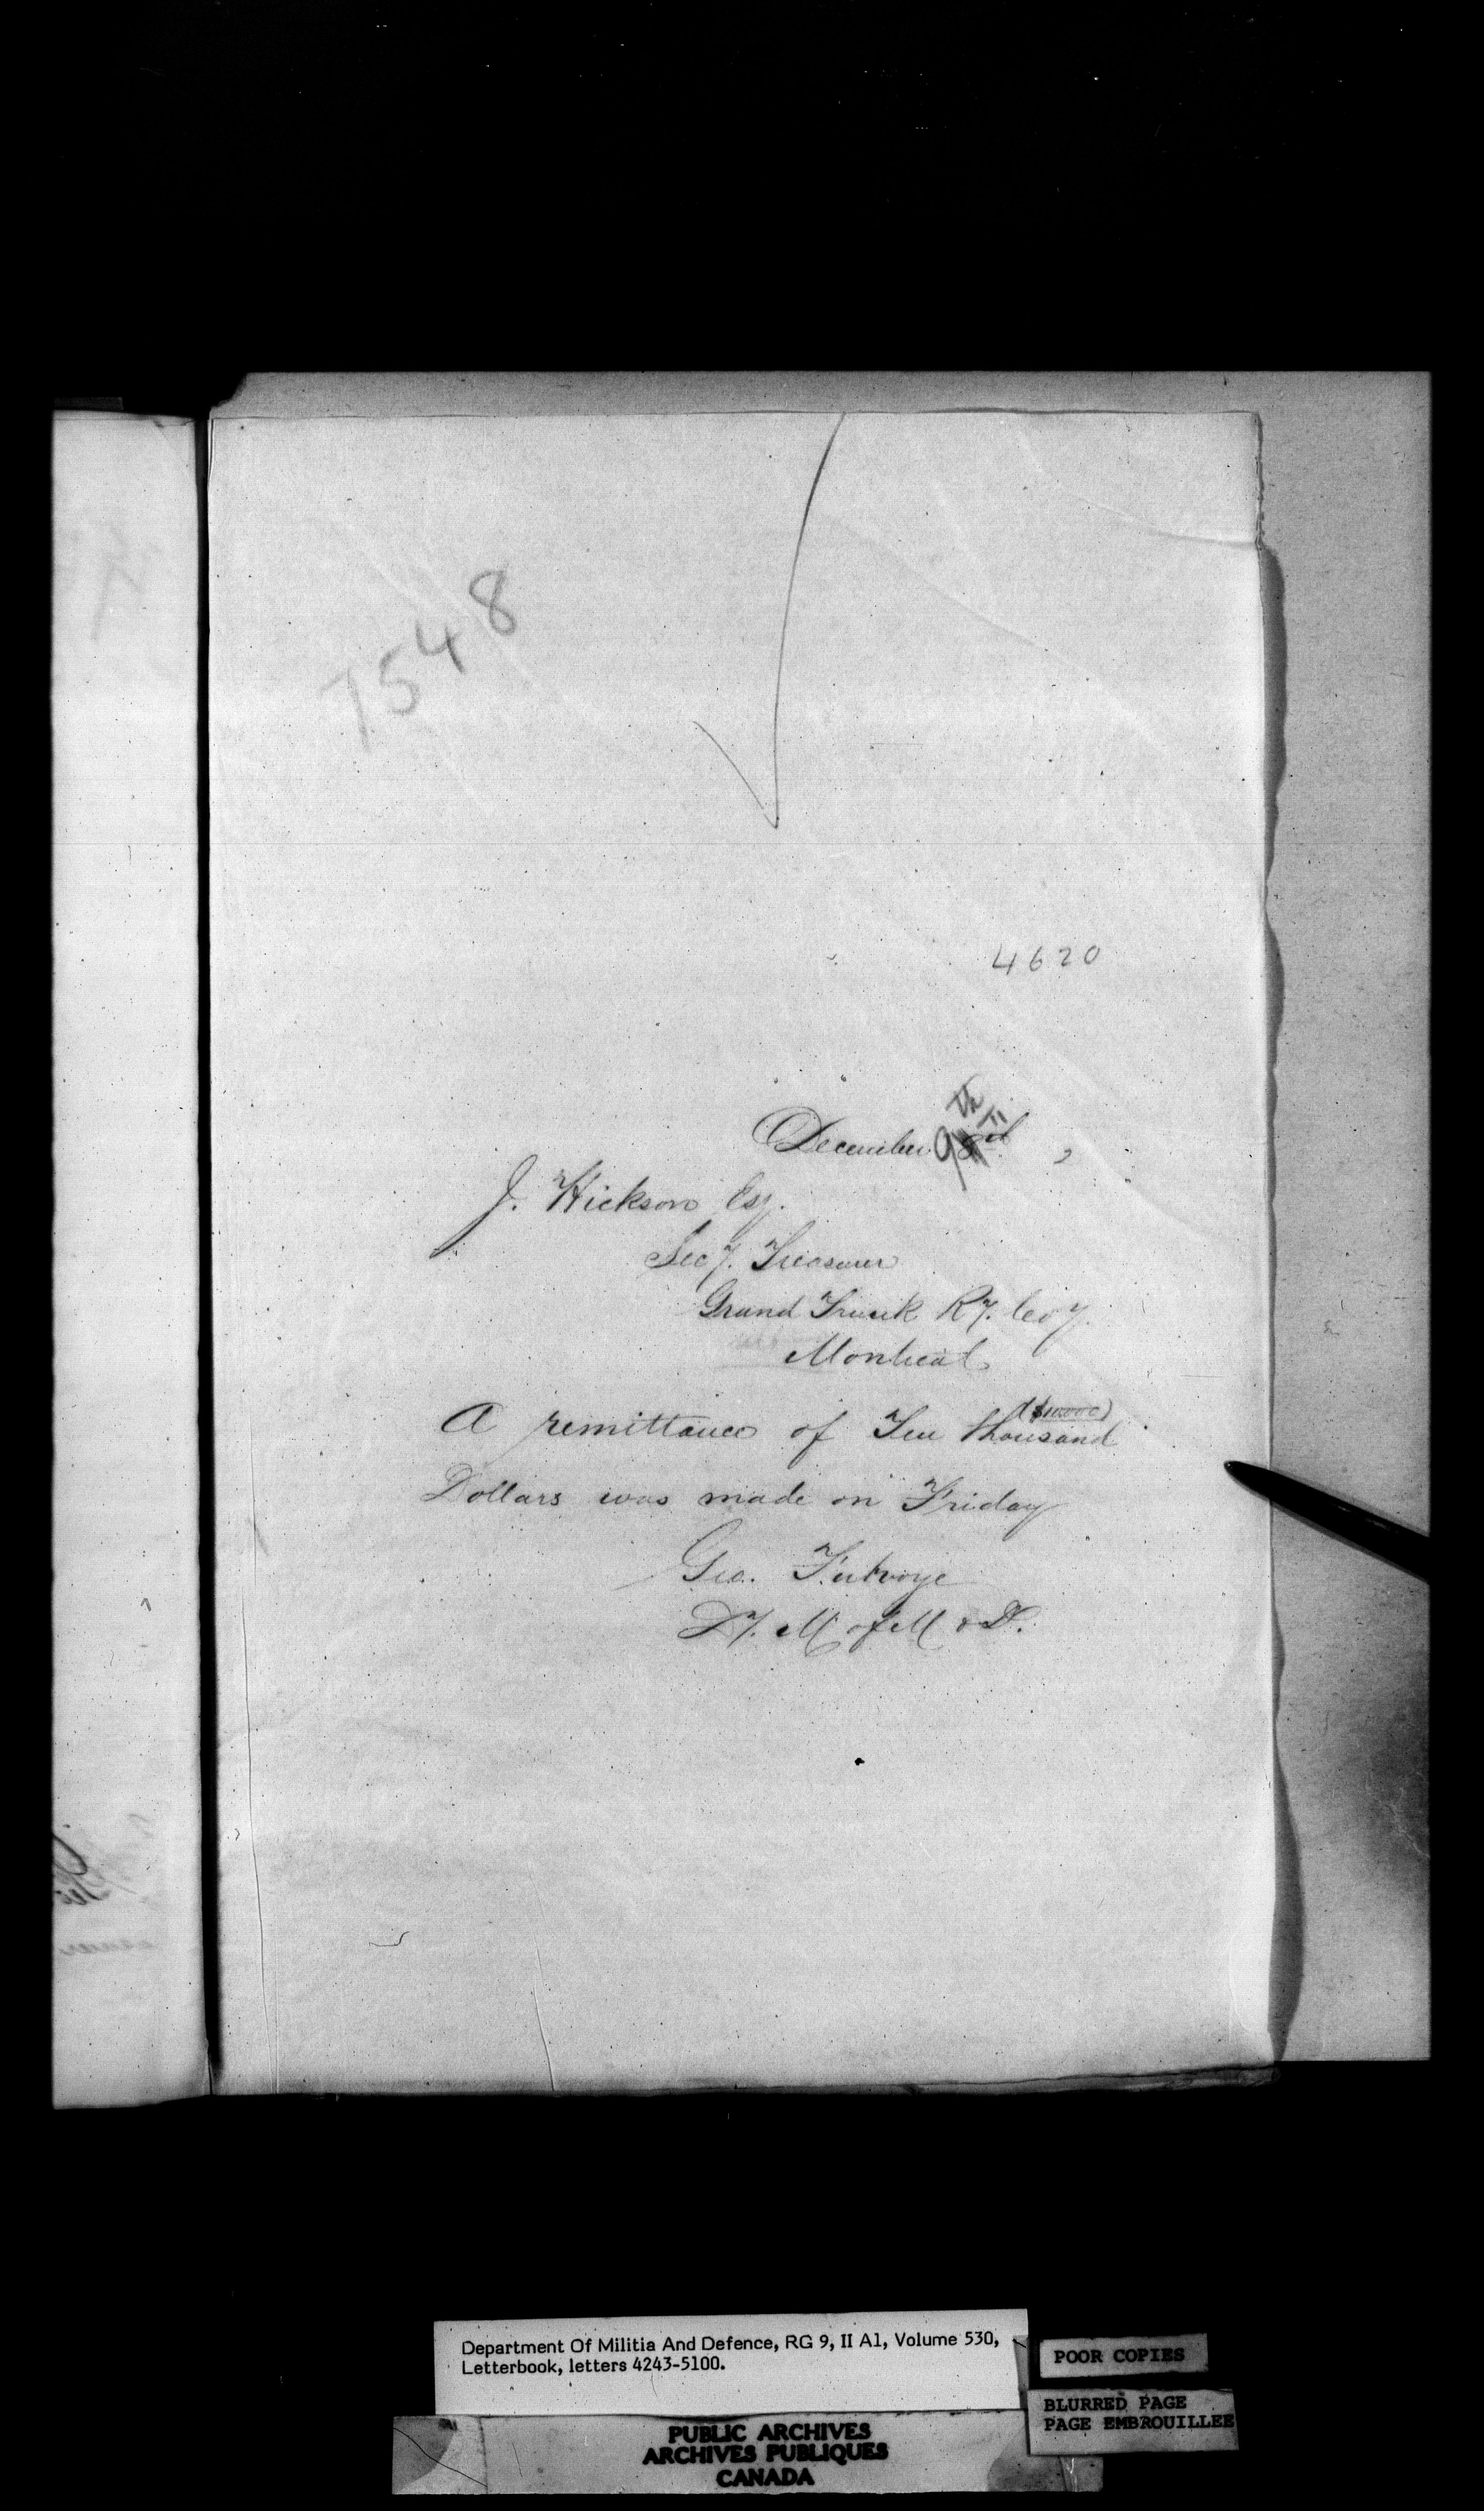 7548
4620
December 9th
J. Hickson Esq.
Secy. Treasurer
Grand Trunk Ry. Coy.
Montreal
($10.000)
A remittance of Ten thousand
Dollars was made on Friday
Geo. Futvoye
Dy. M of M & D.
Department Of Militia And Defence, RG 9, II A1, Volume 530,
Letterbook, letters 4243-5100.
POOR COPIES
BLURRED PAGE
PAGE EMBROUILLEE
PUBLIC ARCHIVES
ARCHIVES PUBLIQUES
CANADA